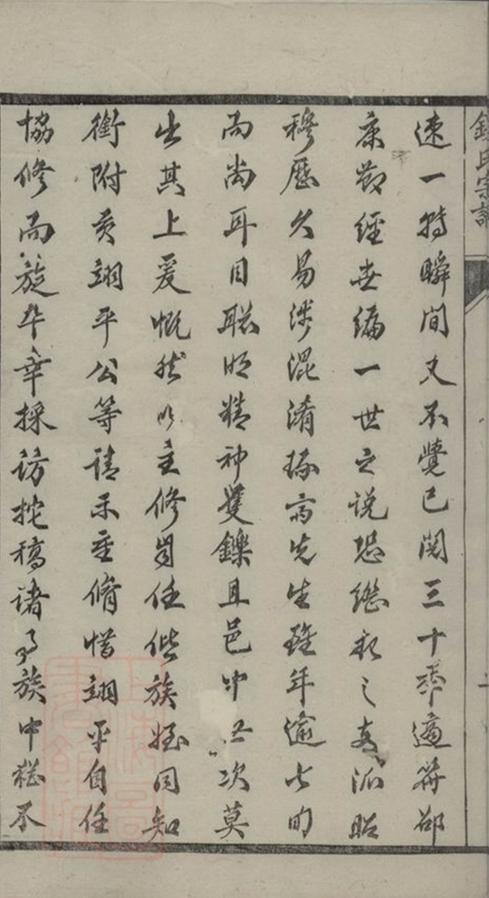 錢氏宗譜
速一轉瞬間又不覺已閱三十年適符邵
康節經世編一世之說恐繼起之支派昭
穆歷久易涉混淆琢齋先生雖年逾七旬
而尚耳目聰明精神矍鑠且邑中名次莫
出其上爰慨然以主修自任偕族姪同知
銜附貢翊平公等請示重脩惜翊平自任
協修而旋卒幸採訪挖稿諸事族中糍不